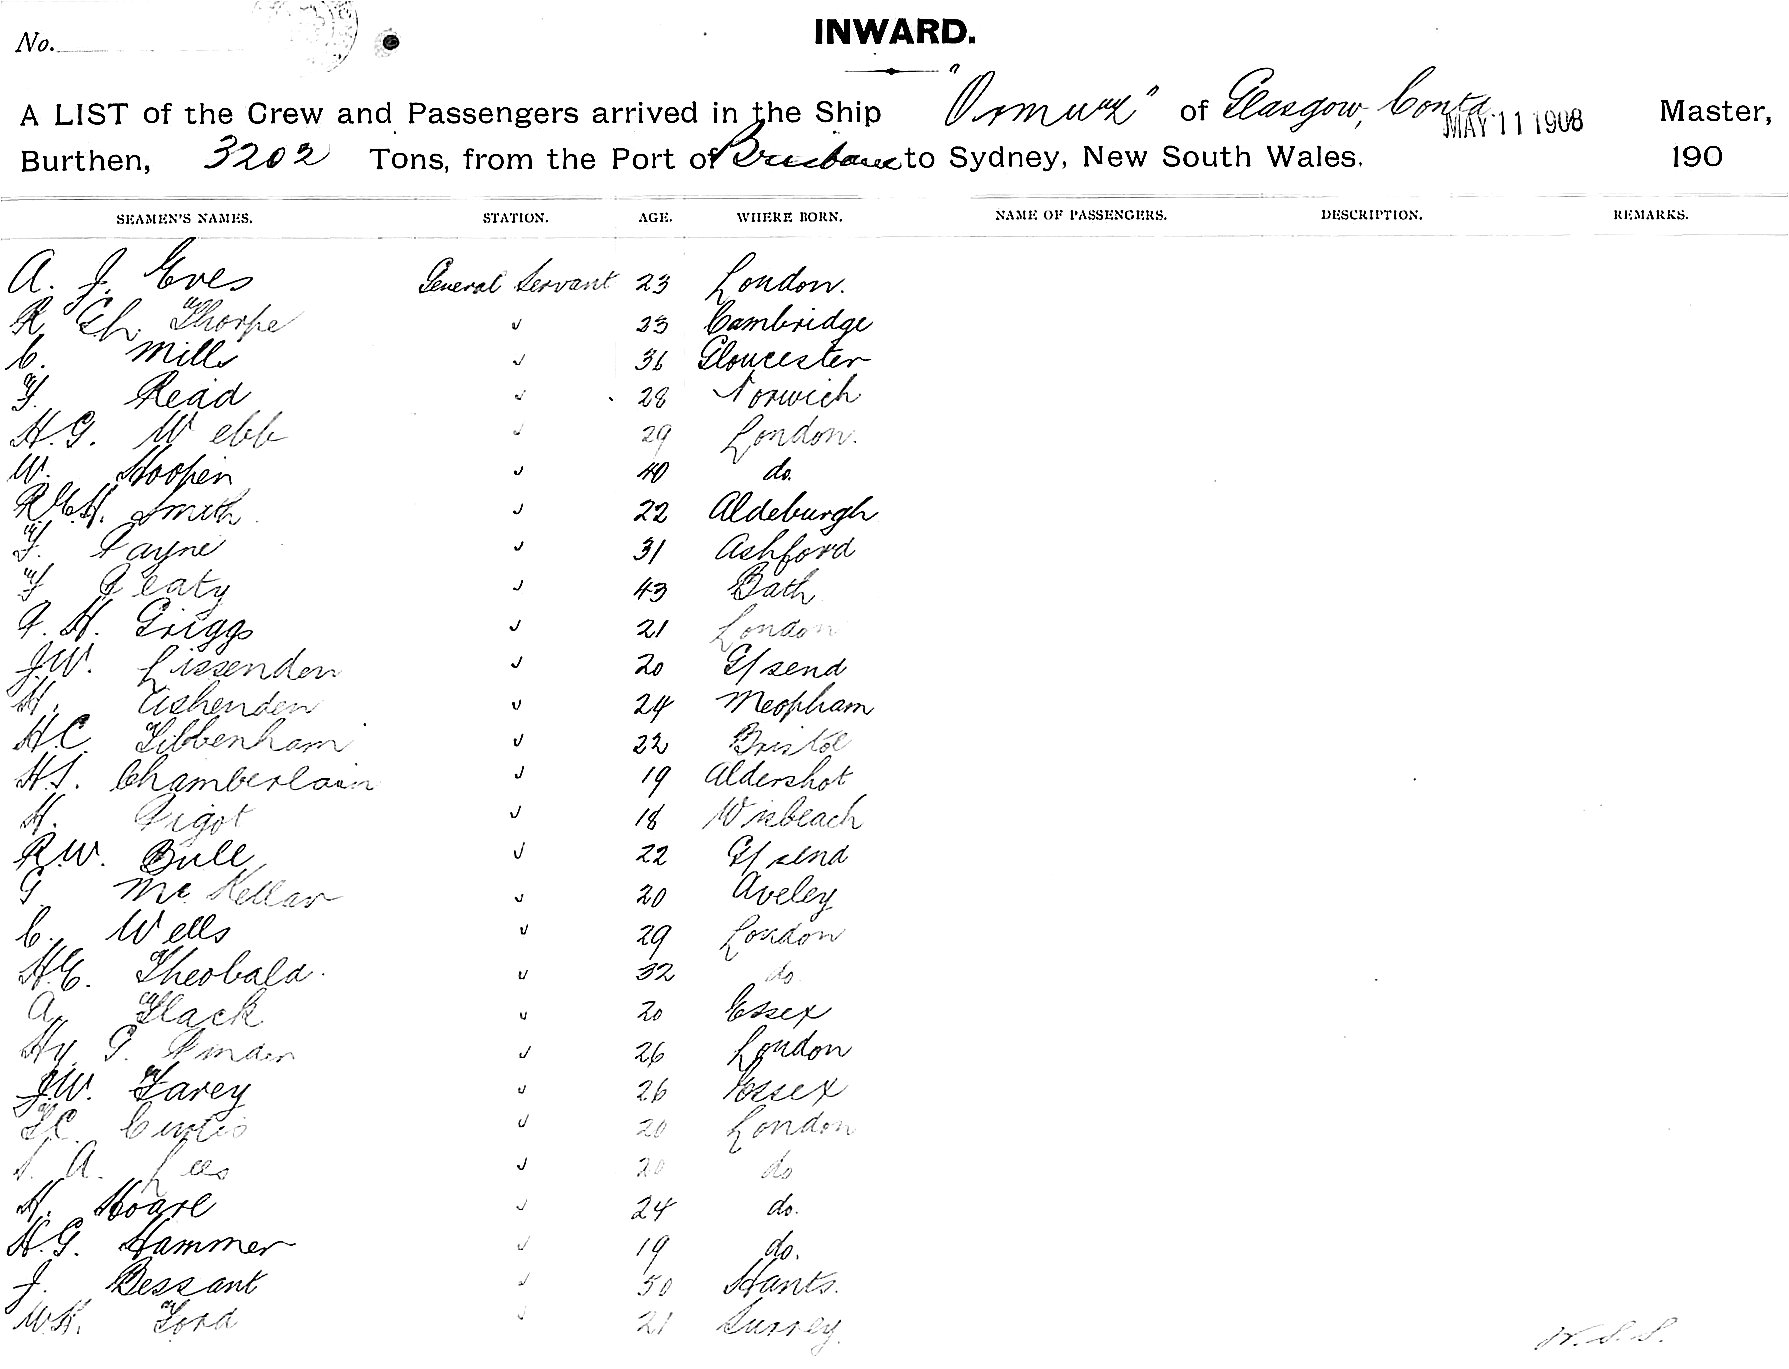 No.
INWARD.
A LIST of the Crew and Passengers arrived in the Ship "Ormuz" of Glasgow, Contd. MAY 11 1908 Master,
Burthen, 3202 Tons, from the Port of Brisbane to Sydney, New South Wales. 190
SEAMEN'S NAMES. STATION. AGE. WHERE BORN. NAME OF PASSENGERS. DESCRIPTION. REMARKS.
A. J. Eves General Servant 23 London.
R. Ch. Thorpe " 23 Cambridge
C. Mills " 36 Gloucester
F. Read " 28 Norwich
H.G. Webb " 29 London.
W. Hooper " 40 do.
R.E.H. Smith " 22 Aldeburgh
F. Payne " 31 Ashford
F. Peaty " 43 Bath
P. H. Griggs " 21 London
J.W. Lissenden " 20 G/send
H. Ashenden " 24 Meopham
H.C. Tibbenham " 22 Bristol
H.S. Chamberlain " 19 Aldershot
H. Pigot " 18 Wisbeach
R.W. Bull " 22 G/send
G McKellar " 20 Aveley
C. Wells " 29 London
H.E. Theobald. " 32 do.
A. Flack " 20 Essex
Hy G. Pinder " 26 London
J.W. Farey " 26 Essex
F.C. Curtis " 20 London
A. Lees " 20 do
H. Hoare " 24 do.
H.G. Hammer " 19 do.
J. Bessant " 50 Hants.
W.H. Ford " 21 Surrey.